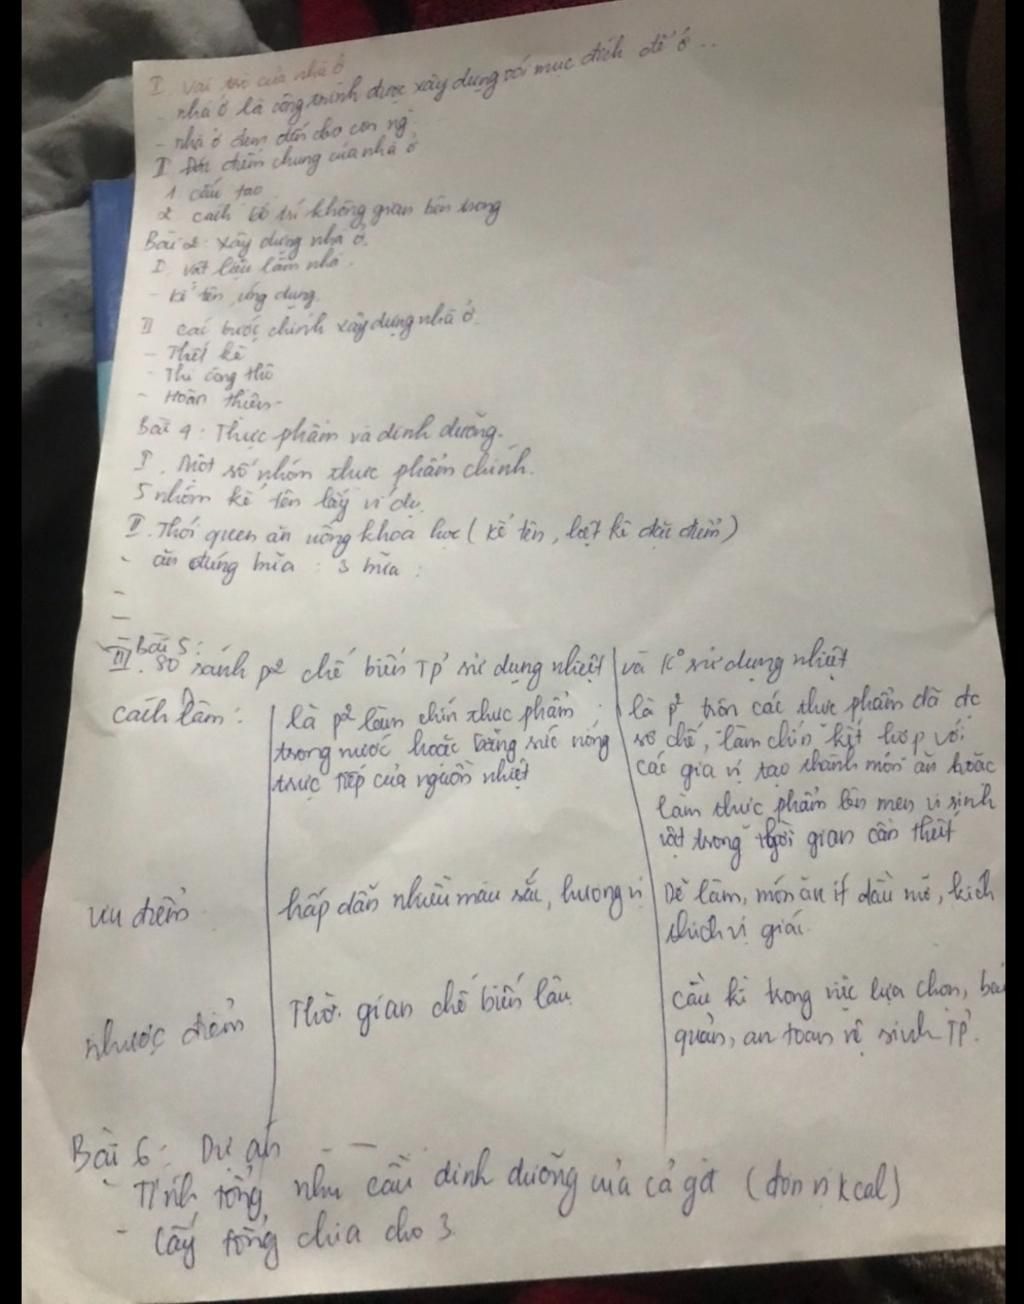 I. Vai trò của nhà ở
- nhà ở là công trình được xây dựng với mục đích để ở ..
- nhà ở đem đến cho con ng
II Đặc điểm chung của nhà ở
1 cấu tạo
2 cách bố trí không gian bên trong
Bài 2: xây dựng nhà ở.
I. vật liệu làm nhà.
- kể tên, ứng dụng.
II các bước chính xây dựng nhà ở.
- Thiết kế
- Thi công thô
- Hoàn thiện
Bài 4: Thực phẩm và dinh dưỡng.
I. Một số nhóm thực phẩm chính.
5 nhóm kể tên lấy ví dụ.
II. Thói quen ăn uống khoa học (kể tên, liệt kê đặc điểm)
- ăn đúng bữa : 3 bữa :
-
-
Bài 5:
III. So sánh p² chế biến TP sử dụng nhiệt và K° sử dụng nhiệt
cách làm:
là p² làm chín thực phẩm
trong nước hoặc bằng sức nóng
trực tiếp của nguồn nhiệt
là p² trộn các thực phẩm đã đc
sơ chế, làm chín kết hợp với
các gia vị tạo thành món ăn hoặc
làm thực phẩm lên men vi sinh
vật trong thời gian cần thiết
ưu điểm
hấp dẫn nhiều màu sắc, hương vị
Dễ làm, món ăn ít dầu mỡ, kích
thích vị giác
nhược điểm
Thời gian chế biến lâu
cầu kì trong việc lựa chọn, bảo
quản, an toàn vệ sinh TP.
Bài 6: Dự án
- Tính tổng nhu cầu dinh dưỡng của cả gđ (đơn vị kcal)
- Lấy tổng chia cho 3